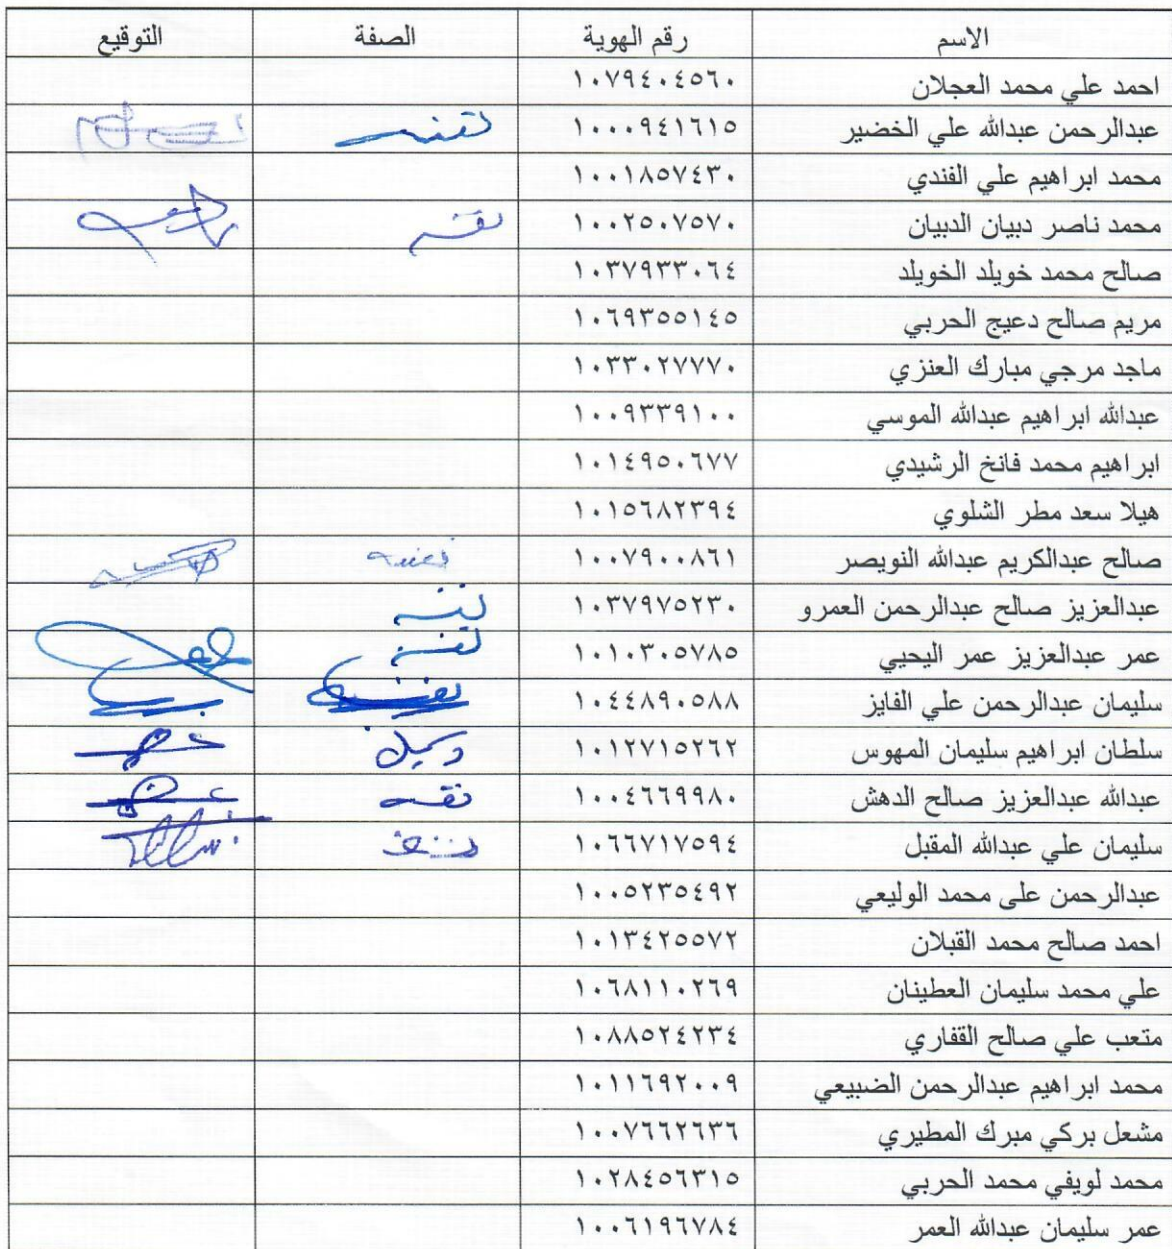 الاسم رقم الهوية الصفة التوقيع
احمد علي محمد العجلان ١٠٧٩٤٠٤٥٦٠
عبدالرحمن عبدالله علي الخضير ١٠٠٠٩٤١٦١٥ نفسه
محمد ابراهيم علي الفندي ١٠٠١٨٥٧٤٣٠
محمد ناصر دبيان الدبيان ١٠٠٢٥٠٧٥٧٠ نفسه
صالح محمد خويلد الخويلد ١٠٣٧٩٣٣٠٦٤
مريم صالح دعيج الحربي ١٠٦٩٣٥٥١٤٥
ماجد مرجي مبارك العنزي ١٠٣٣٠٢٧٧٧٠
عبدالله ابراهيم عبدالله الموسي ١٠٠٩٣٣٩١٠٠
ابراهيم محمد فانخ الرشيدي ١٠١٤٩٥٠٦٧٧
هيلا سعد مطر الشلوي ١٠١٥٦٨٢٣٩٤
صالح عبدالكريم عبدالله النويصر ١٠٠٧٩٠٠٨٦١ نفسه
عبدالعزيز صالح عبدالرحمن العمرو ١٠٣٧٩٧٥٢٣٠ نفسه
عمر عبدالعزيز عمر اليحيي ١٠١٠٣٠٥٧٨٥ نفسه
سليمان عبدالرحمن علي الفايز ١٠٤٤٨٩٠٥٨٨ نفسه
سلطان ابراهيم سليمان المهوس ١٠١٢٧١٥٢٦٢ وكيل
عبدالله عبدالعزيز صالح الدهش ١٠٠٤٦٦٩٩٨٠ نفسه
سليمان علي عبدالله المقبل ١٠٦٦٧١٧٥٩٤ نفسه
عبدالرحمن على محمد الوليعي ١٠٠٥٢٣٥٤٩٢
احمد صالح محمد القبلان ١٠١٣٤٢٥٥٧٢
علي محمد سليمان العطينان ١٠٦٨١١٠٢٦٩
متعب علي صالح القفاري ١٠٨٨٥٢٤٢٣٤
محمد ابراهيم عبدالرحمن الضبيعي ١٠١١٦٩٢٠٠٩
مشعل بركي مبرك المطيري ١٠٠٧٦٦٢٦٣٦
محمد لويفي محمد الحربي ١٠٢٨٤٥٦٣١٥
عمر سليمان عبدالله العمر ١٠٠٦١٩٦٧٨٤